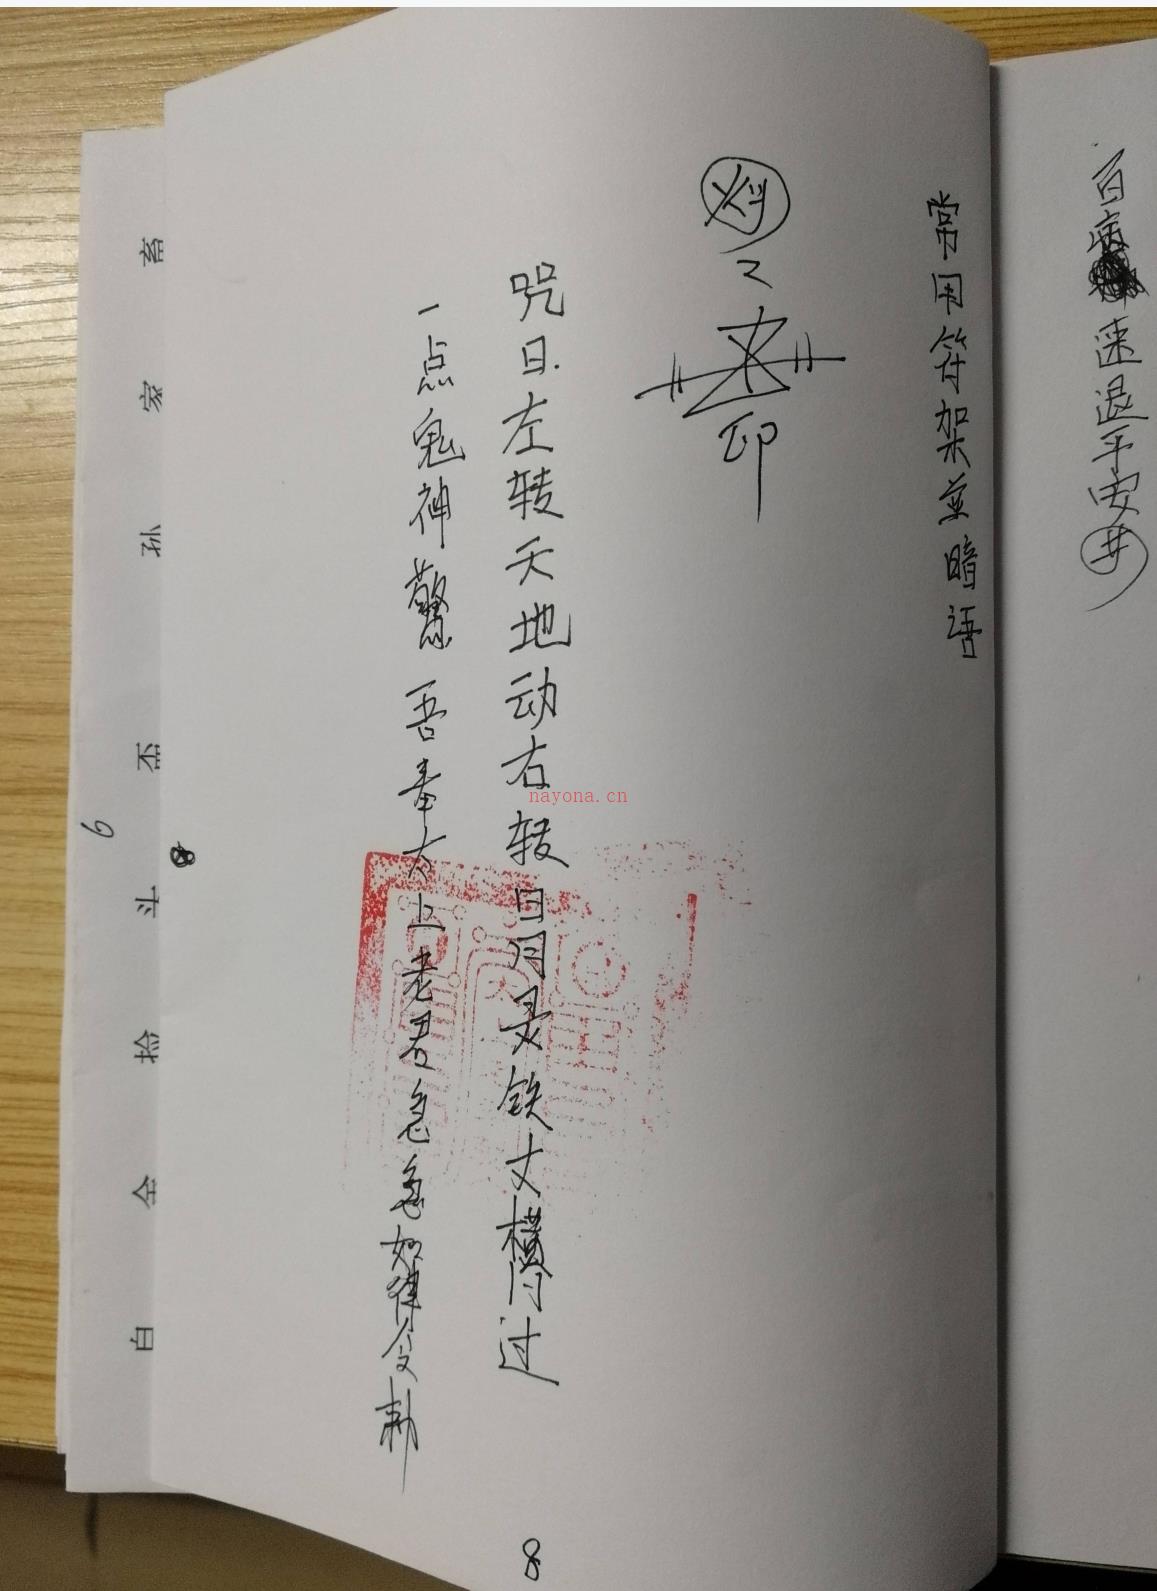 百病速退平安井
常用符架並暗语
印
咒曰左转天地动右转日月灵铁丈横门过
一点鬼神驚吾奉太上老君急急如律令勅
畜 家 孙 丕 斗 捡 全 白
6
8
8
nayona.cn